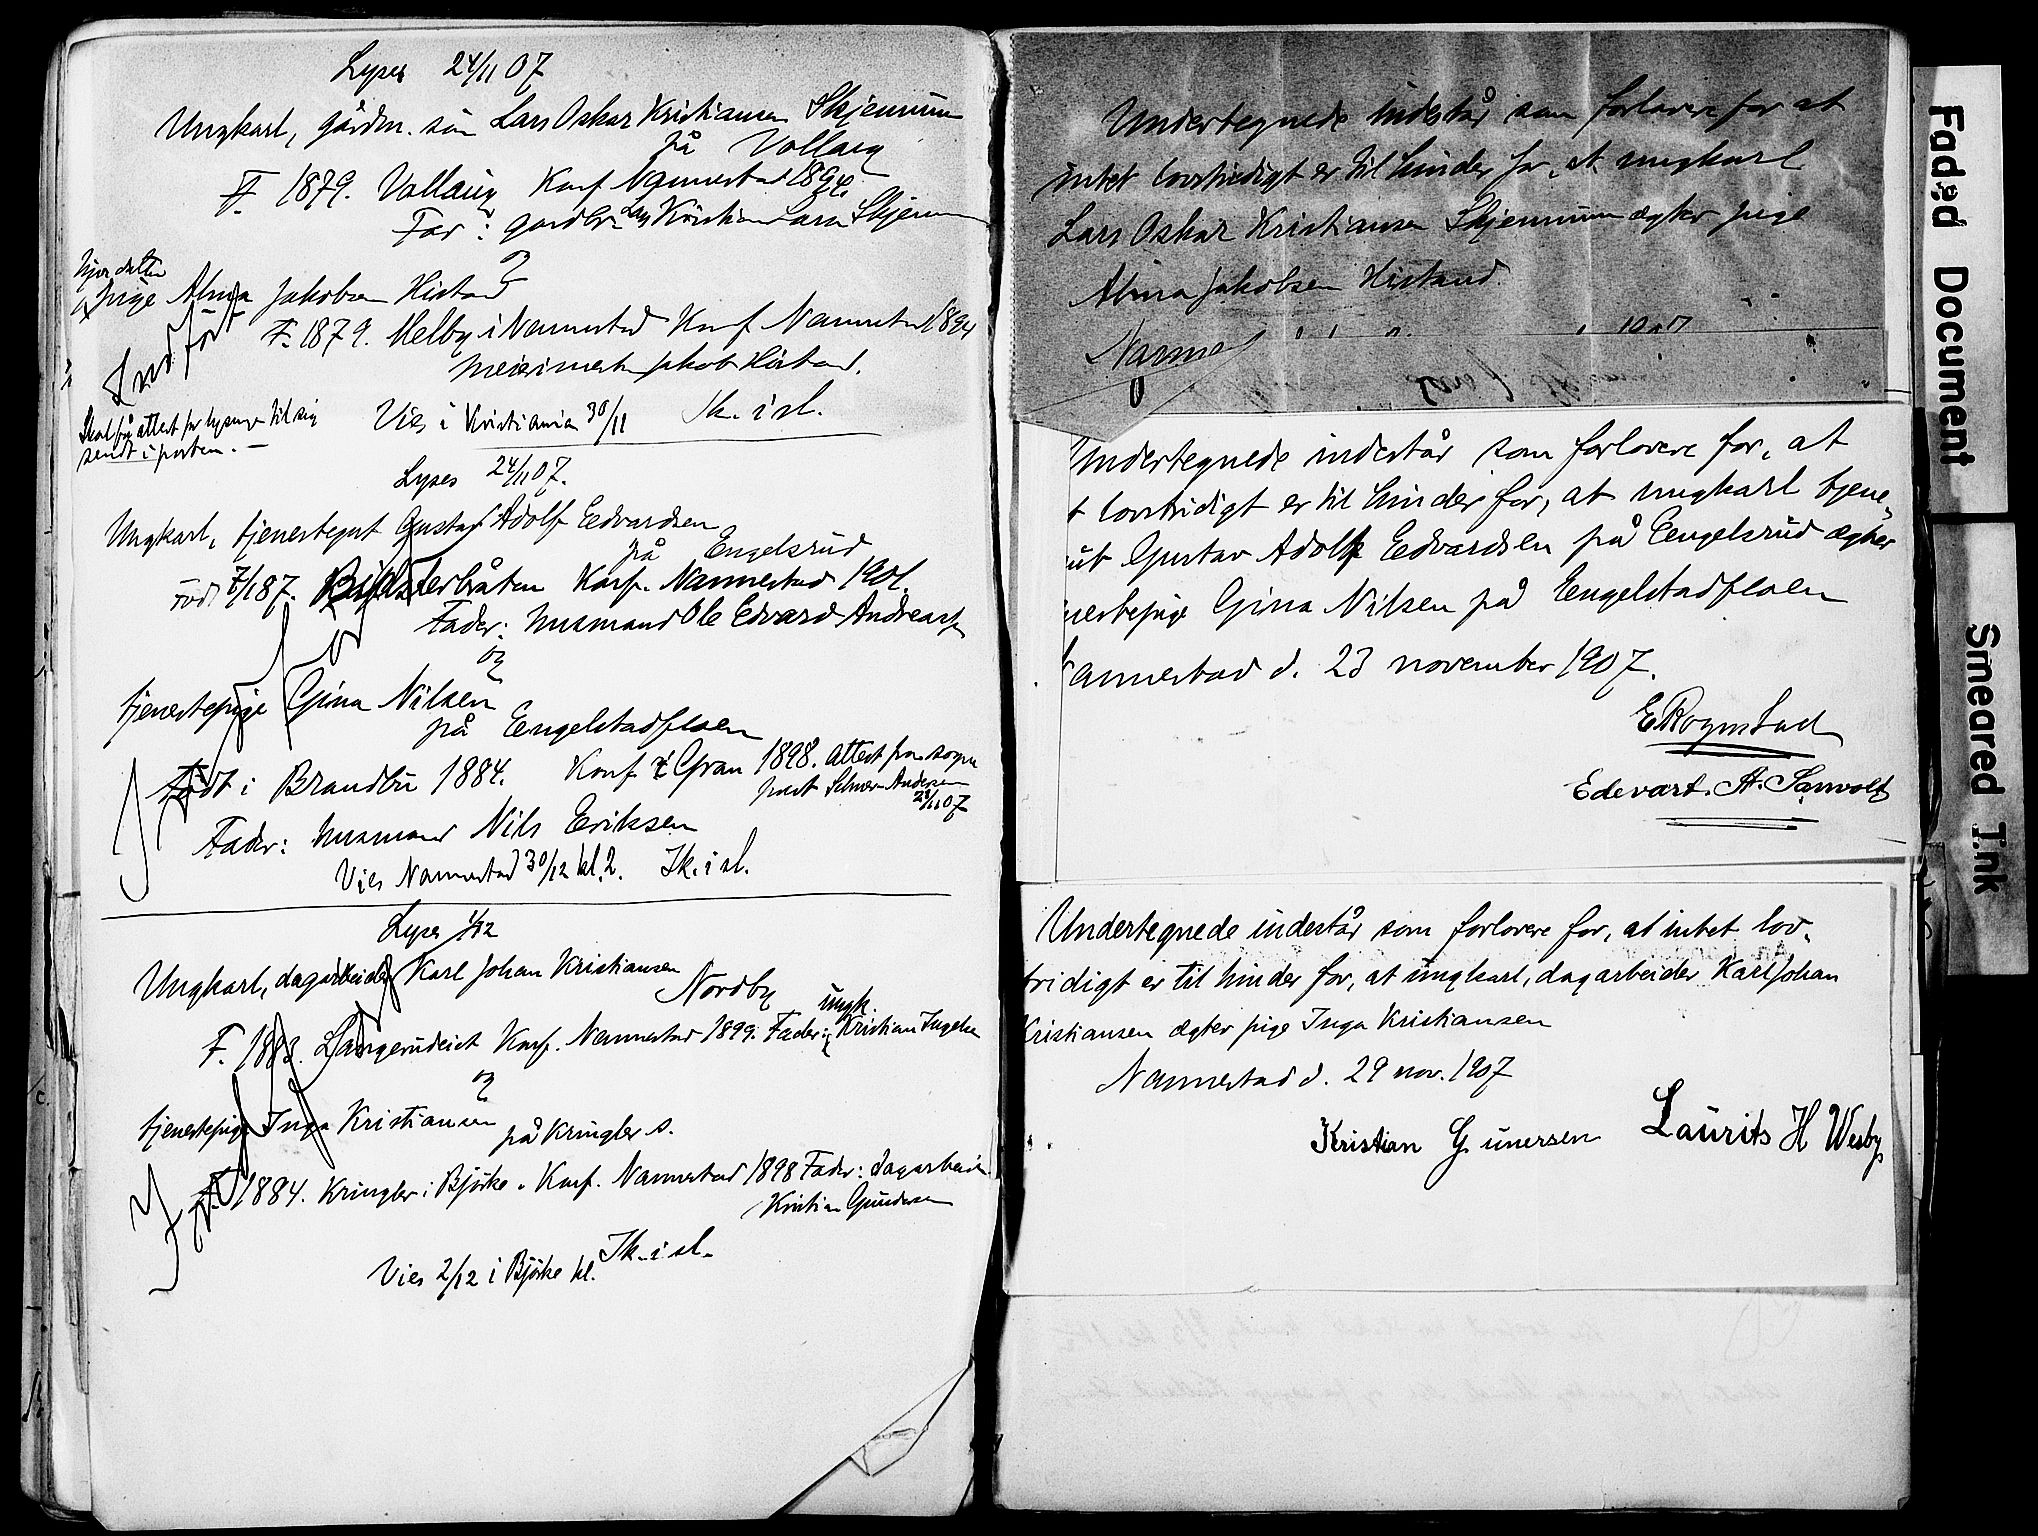 Lyses 24/11 07
Ungkarl, gårdm. sön Lars Oskar Kristiansen Skjennum
på Vollaug
F. 1879. Vollaug Konf Nannestad 1894.
Far: gårdbr. Kristian Larsn Skjennum
og
pige Alma Jakobsen Histad
F. 1879. Melby i Nannestad Konf Nannestad 1894
meierimester Jakob Histad.
Indfört
Skal få attest for lysning til sig
sendt i posten. —
Vies i Kristiania 30/11 Sk. i sl.
Lyses 24/11 07.
Ungkarl, tjenestegut Gustav Adolf Edvardsen
på Engelsrud
Född 7/1 87. Konf. Nannestad 1901.
Fader: husmand Ole Edvard Andreasen
og
tjenestepige Gina Nilsen
på Engelstadfloen
Född i Brandbu 1884. Konf i Gran 1898. Attest fra sogne
prest
23/11 07
Fader: husmand Nils Eriksen
Indfört
Vies Nannestad 30/12 kl. 2. Sk. i sl.
Lyses 1/12
Ungkarl, dagarbeider Karl Johan Kristiansen
Nordby
ungk.
F. 1883. Langerudeiet Konf. Nannestad 1899. Fader: Kristian Ingebr
og
tjenestepige Inga Kristiansen
på Kringler s.
F. 1884. Kringler i Bjørke. Konf. Nannestad 1898 Fader: dagarbeider
Kristian Gundersen
Indfört
Vies 2/12 i Bjørke kl. Sk. i sl.
Undertegnede indestår som forlovere for at
intet lovstridigt er til hinder for, at ungkarl
Lars Oskar Kristiansen Skjennum ægter pige
Alma Jakobsen Histand.
Nanne
Undertegnede indestår som forlovere for, at
t lovstridigt er til hinder for, at ungkarl tjene
ut Gustav Adolf Edvardsen på Engelsrud ægter
nestepige Gina Nilsen på Engelstadfloen
annestad d. 23 november 1907.
E Rognstad
Edevart. A. Sanvold
Undertegnede indestår som forlovere for, at intet lov-
tridigt er til hinder for, at ungkarl, dagarbeider Karl Johan
Kristiansen ægter pige Inga Kristiansen
Nannestad d. 29 nov. 1907
Kristian Gunersen Laurits H Wesby
Faded Document
Smeared Ink